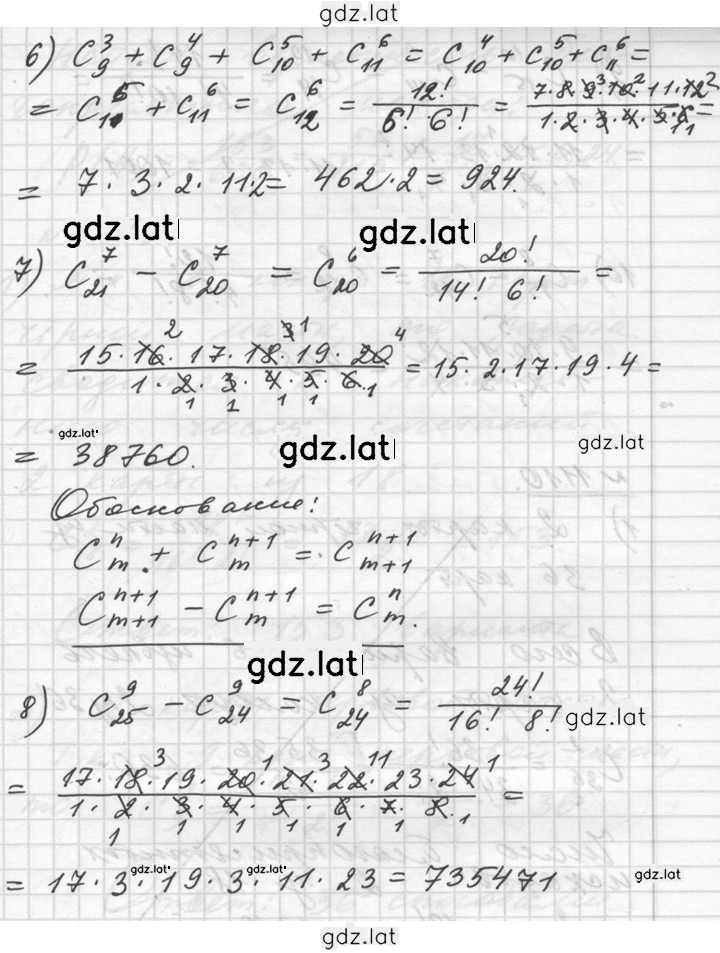 gdz.lat
6) C₉³ + C₉⁴ + C₁₀⁵ + C₁₁⁶ = C₁₀⁴ + C₁₀⁵ + C₁₁⁶ =
= C₁₁⁵ + C₁₁⁶ = C₁₂⁶ = 12! / (6! 6!) = (7·8·9³·10²·11·12²) / (1·2·3·4·5·6) =
= 7·3·2·11·2 = 462·2 = 924.
gdz.lat gdz.lat
7) C₂₁⁷ − C₂₀⁷ = C₂₀⁶ = 20! / (14! 6!) =
= (15·16²·17·18³¹·19·20⁴) / (1·2·3·4·5·6) = 15·2·17·19·4 =
gdz.lat gdz.lat gdz.lat
= 38760.
Обоснование:
Cₘⁿ + Cₘⁿ⁺¹ = Cₘ₊₁ⁿ⁺¹
Cₘ₊₁ⁿ⁺¹ − Cₘⁿ⁺¹ = Cₘⁿ.
gdz.lat
8) C₂₅⁹ − C₂₄⁹ = C₂₄⁸ = 24! / (16! 8!)
gdz.lat
= (17·18³·19·20¹·21³·22¹¹·23·24¹) / (1·2·3·4·5·6·7·8) =
gdz.lat gdz.lat gdz.lat
= 17·3·19·3·11·23 = 735471
gdz.lat